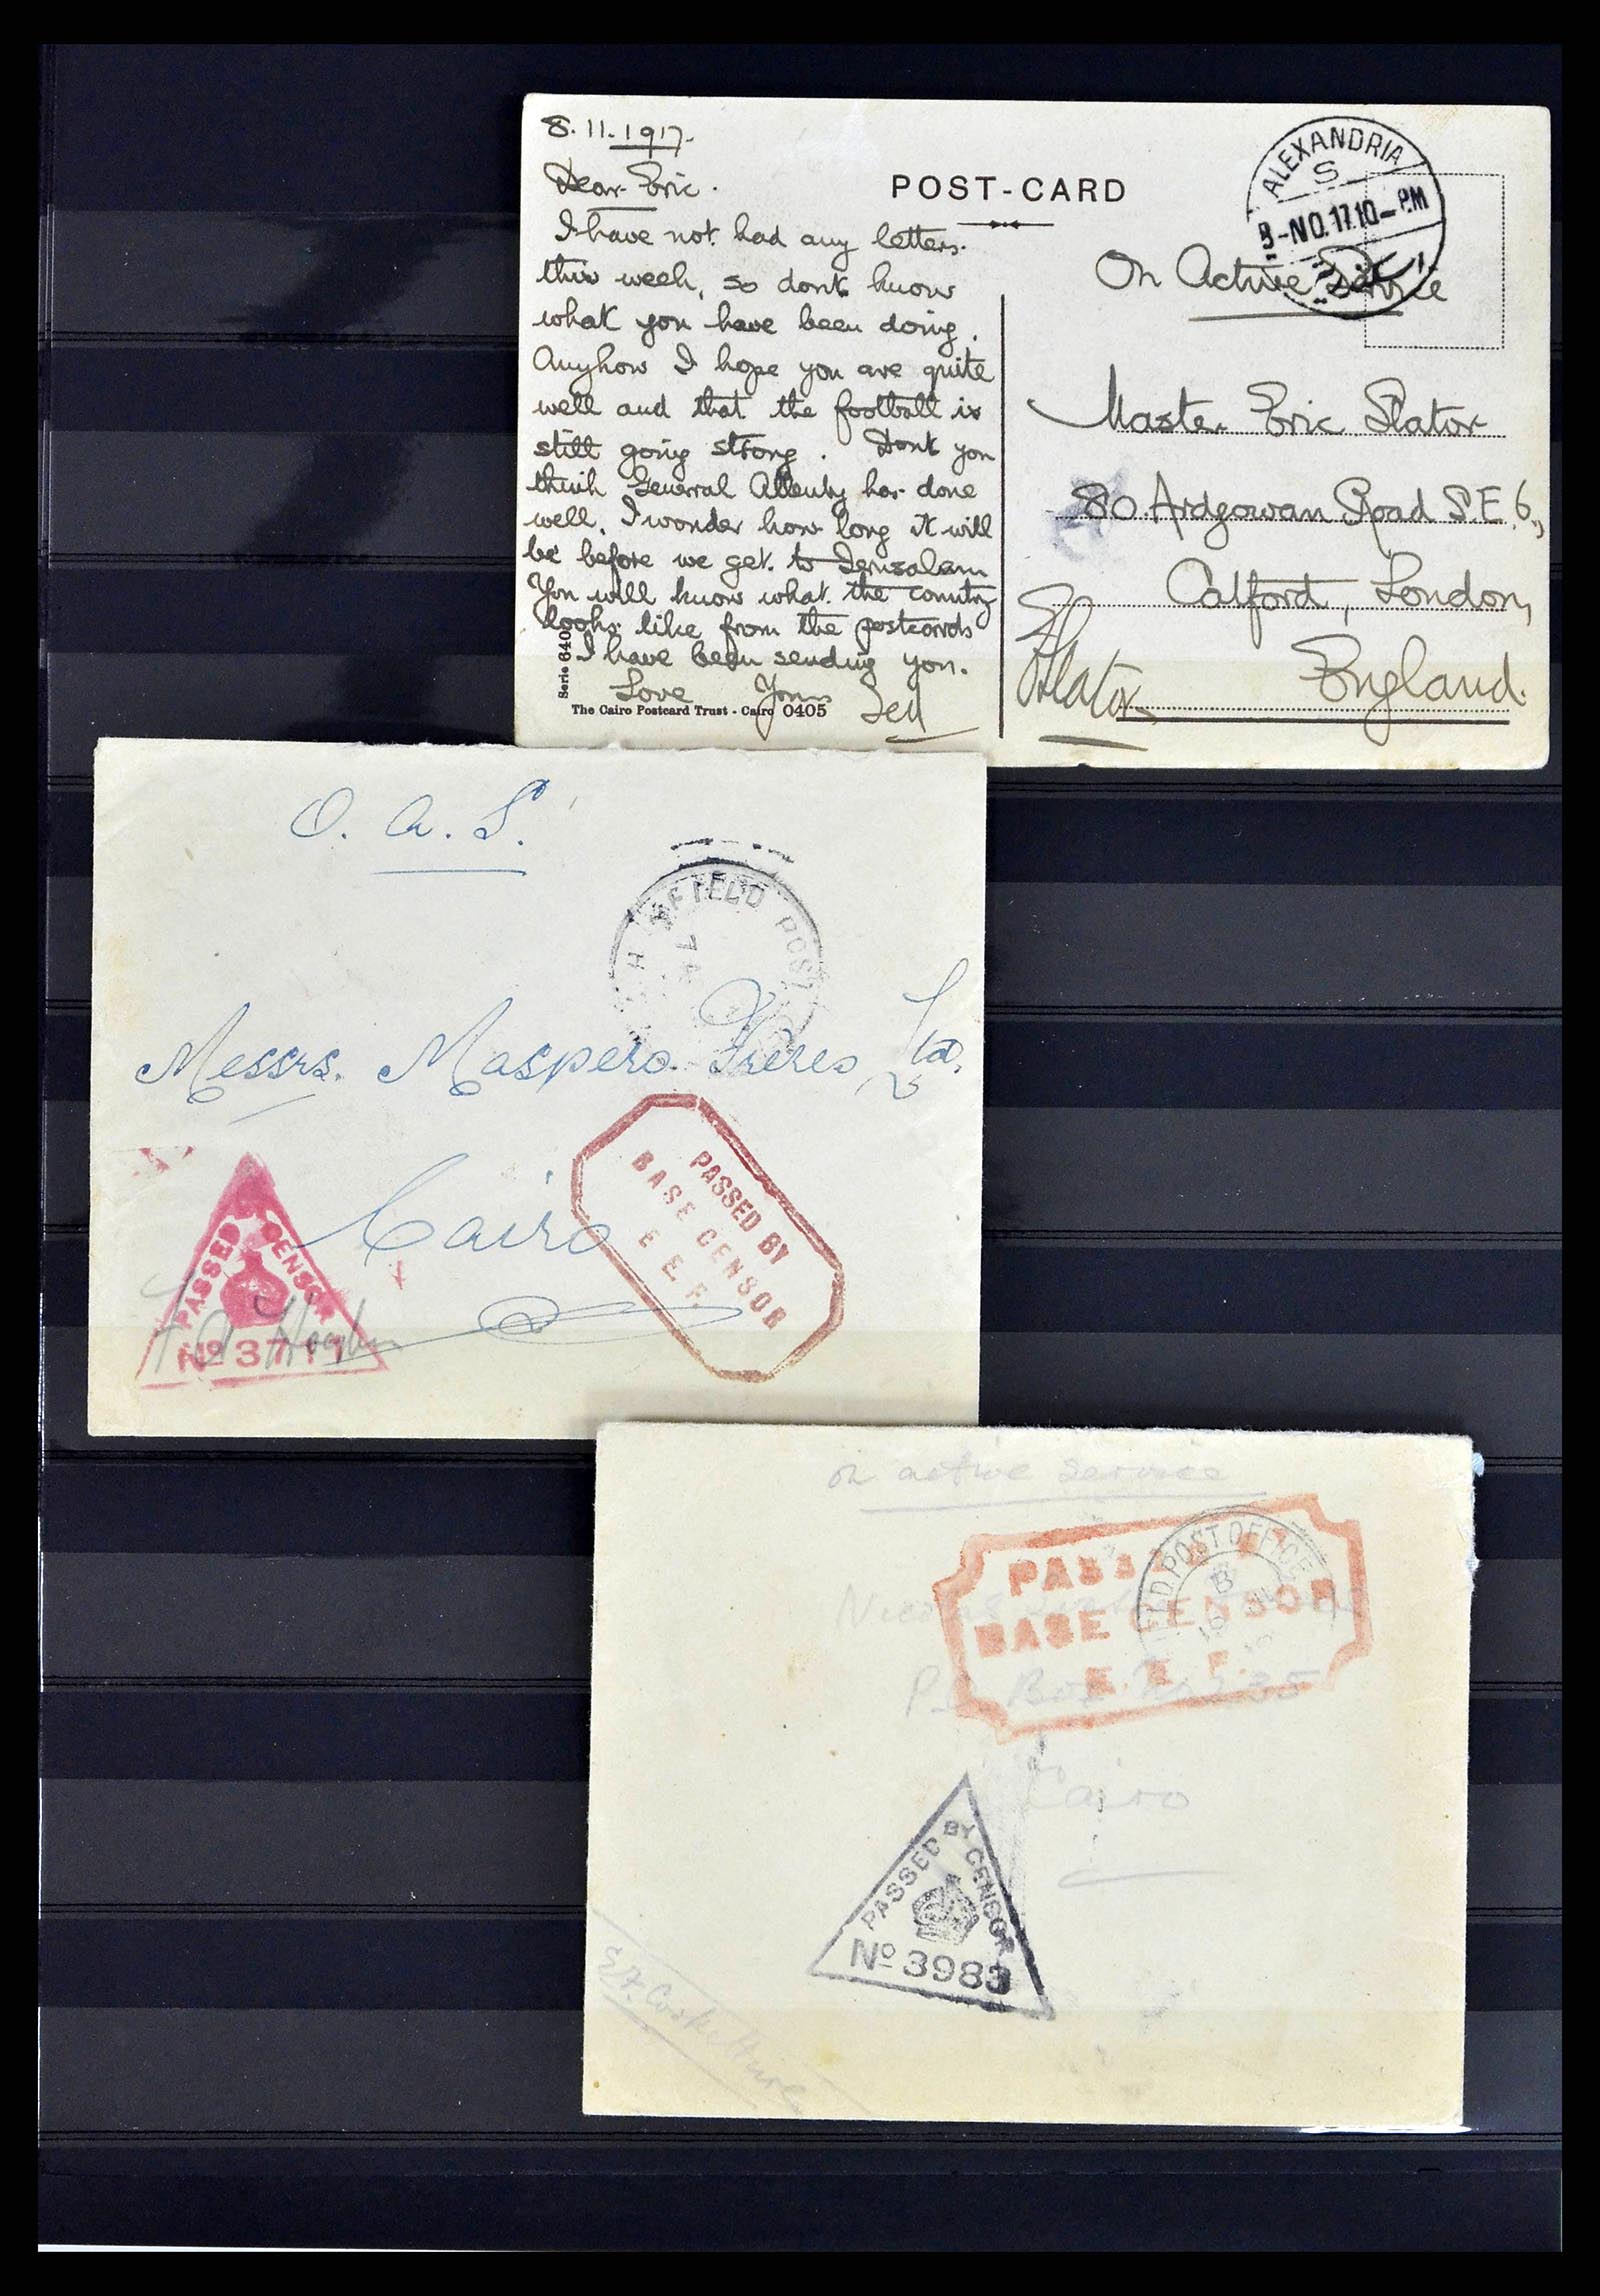 8.11.1917.
Dear Eric.
I have not had any letters
this week, so dont know
what you have been doing.
Anyhow I hope you are quite
well and that the football is
still going strong. Dont you
think General Allenby has done
well. I wonder how long it will
be before we get to Jerusalem
You will know what the country
looks like from the postcards
I have been sending you.
Love Yours
Serie 640
The Cairo Postcard Trust - Cairo 0405
POST-CARD
ALEXANDRIA
S
-NO.17.10-PM
On Active Service
Master Eric Slator
80 Ardgowan Road S.E.6.,
Catford, London,
England.
Slator
O.A.S.
FIELD POST
Messrs. Maspero Frères, Ltd.
Cairo
PASSED BY
BASE CENSOR
E.E.F.
PASSED CENSOR
No 3711
on active service
PASSED BY
BASE CENSOR
E.E.F.
POST OFFICE
B
P.O. Box No 235
Cairo
PASSED BY CENSOR
No 3983